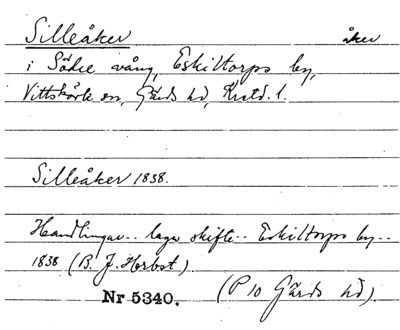 Silleåker åker
i Södre vång, Eskiltorps by,
Vittskövle sn, Gärds hd, Kristd. l.
Silleåker 1838.
Handlingar.. laga skifte.. Eskiltorps by..
1838 (B. J. Herbst)
Nr 5340. (P 10 Gärds hd)